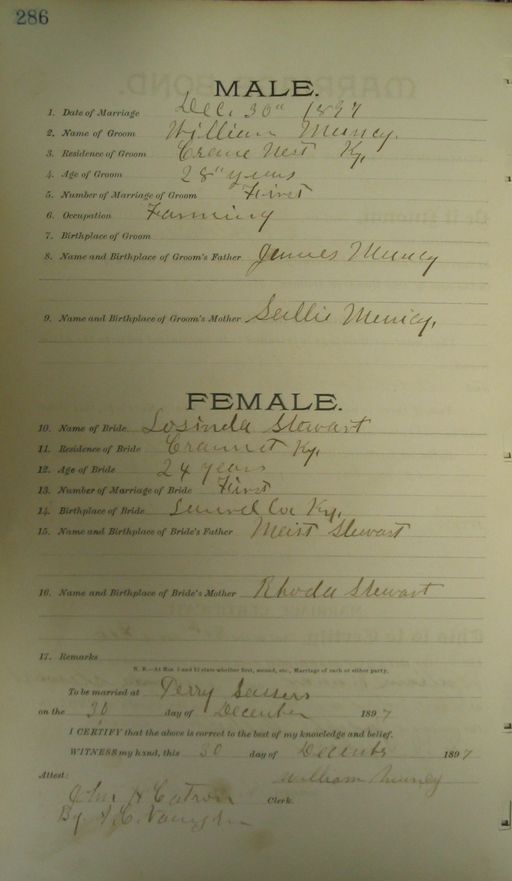 286
MALE.
1. Date of Marriage Dec. 30" 1897
2. Name of Groom William Muncy.
3. Residence of Groom Crane Nest Ky,
4. Age of Groom 28" years
5. Number of Marriage of Groom First
6. Occupation Farming
7. Birthplace of Groom
8. Name and Birthplace of Groom's Father James Muncy
9. Name and Birthplace of Groom's Mother Sallie Muncy,
FEMALE.
10. Name of Bride Losinda Stewart
11. Residence of Bride Ky,
12. Age of Bride 24 years
13. Number of Marriage of Bride First
14. Birthplace of Bride Laurel Co Ky,
15. Name and Birthplace of Bride's Father Stewart
16. Name and Birthplace of Bride's Mother Rhoda Stewart
17. Remarks
N. B.—At Nos. 5 and 13 state whether first, second, etc., Marriage of each or either party.
To be married at Perry
on the 30 day of December 1897
I CERTIFY that the above is correct to the best of my knowledge and belief.
WITNESS my hand, this 30 day of December 1897
William Muncy
Attest:
John H Catron Clerk.
By